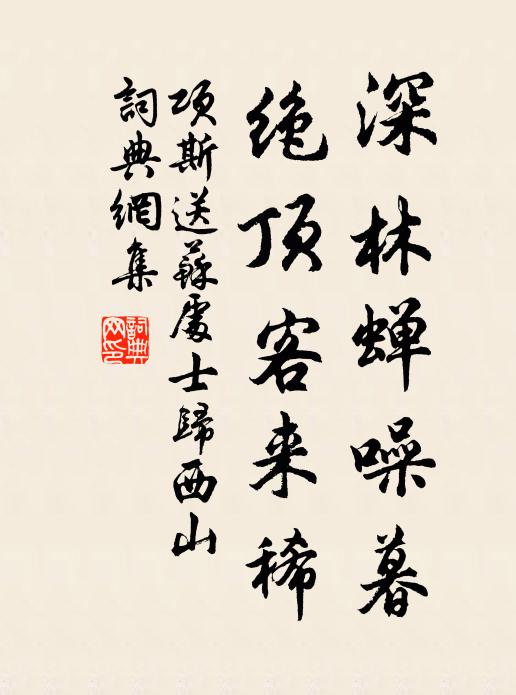 深林蝉噪暮
绝顶客来稀
项斯送蘇處士歸西山
詞典網集
詞典网印